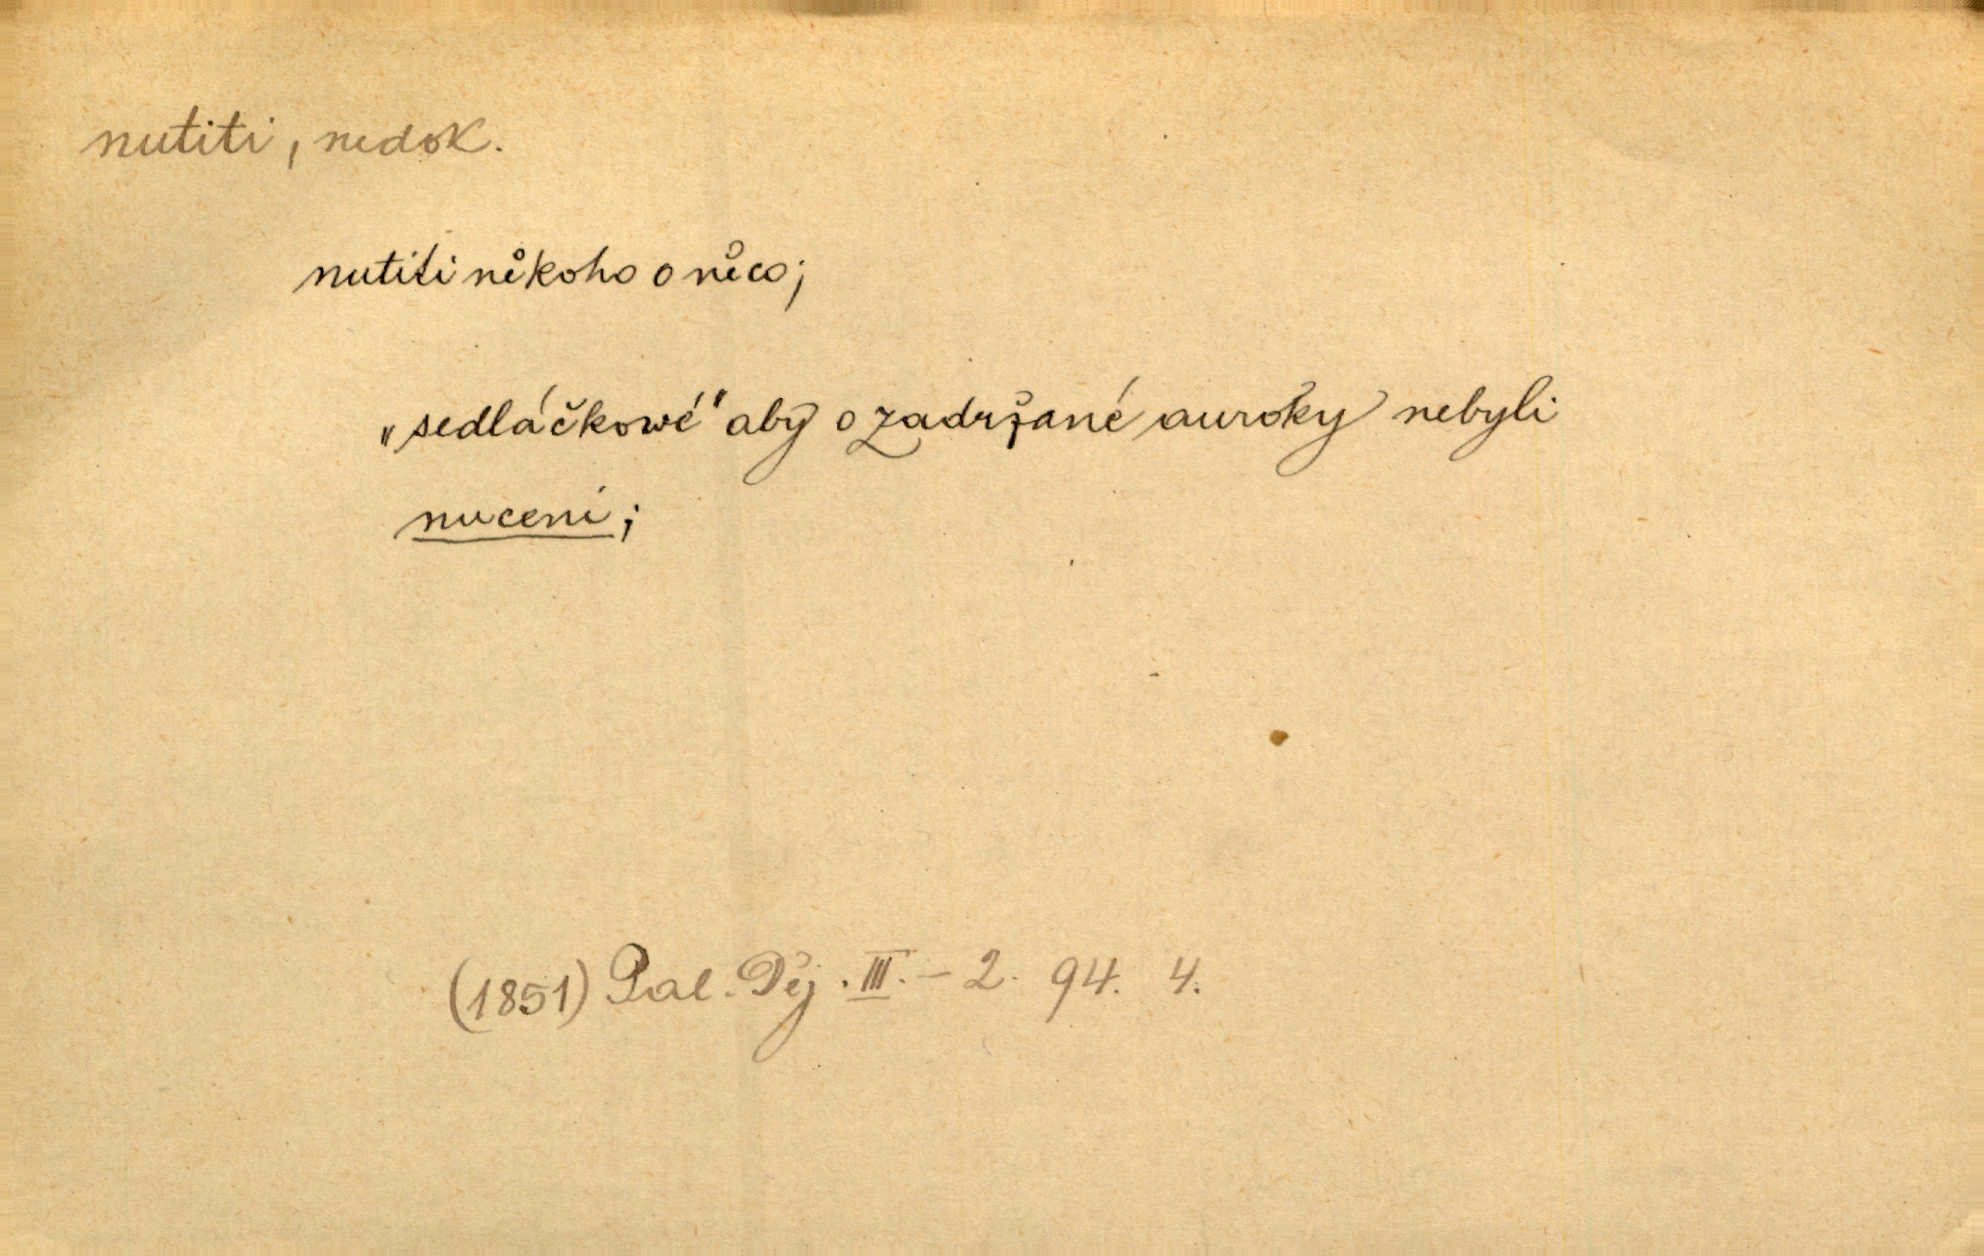 nutiti, nedok.
nutiti někoho o něco;
„sedláčkowé" aby o zadržané auroky nebyli
nuceni;
(1851) Pal. Děj. III. – 2. 94. 4.